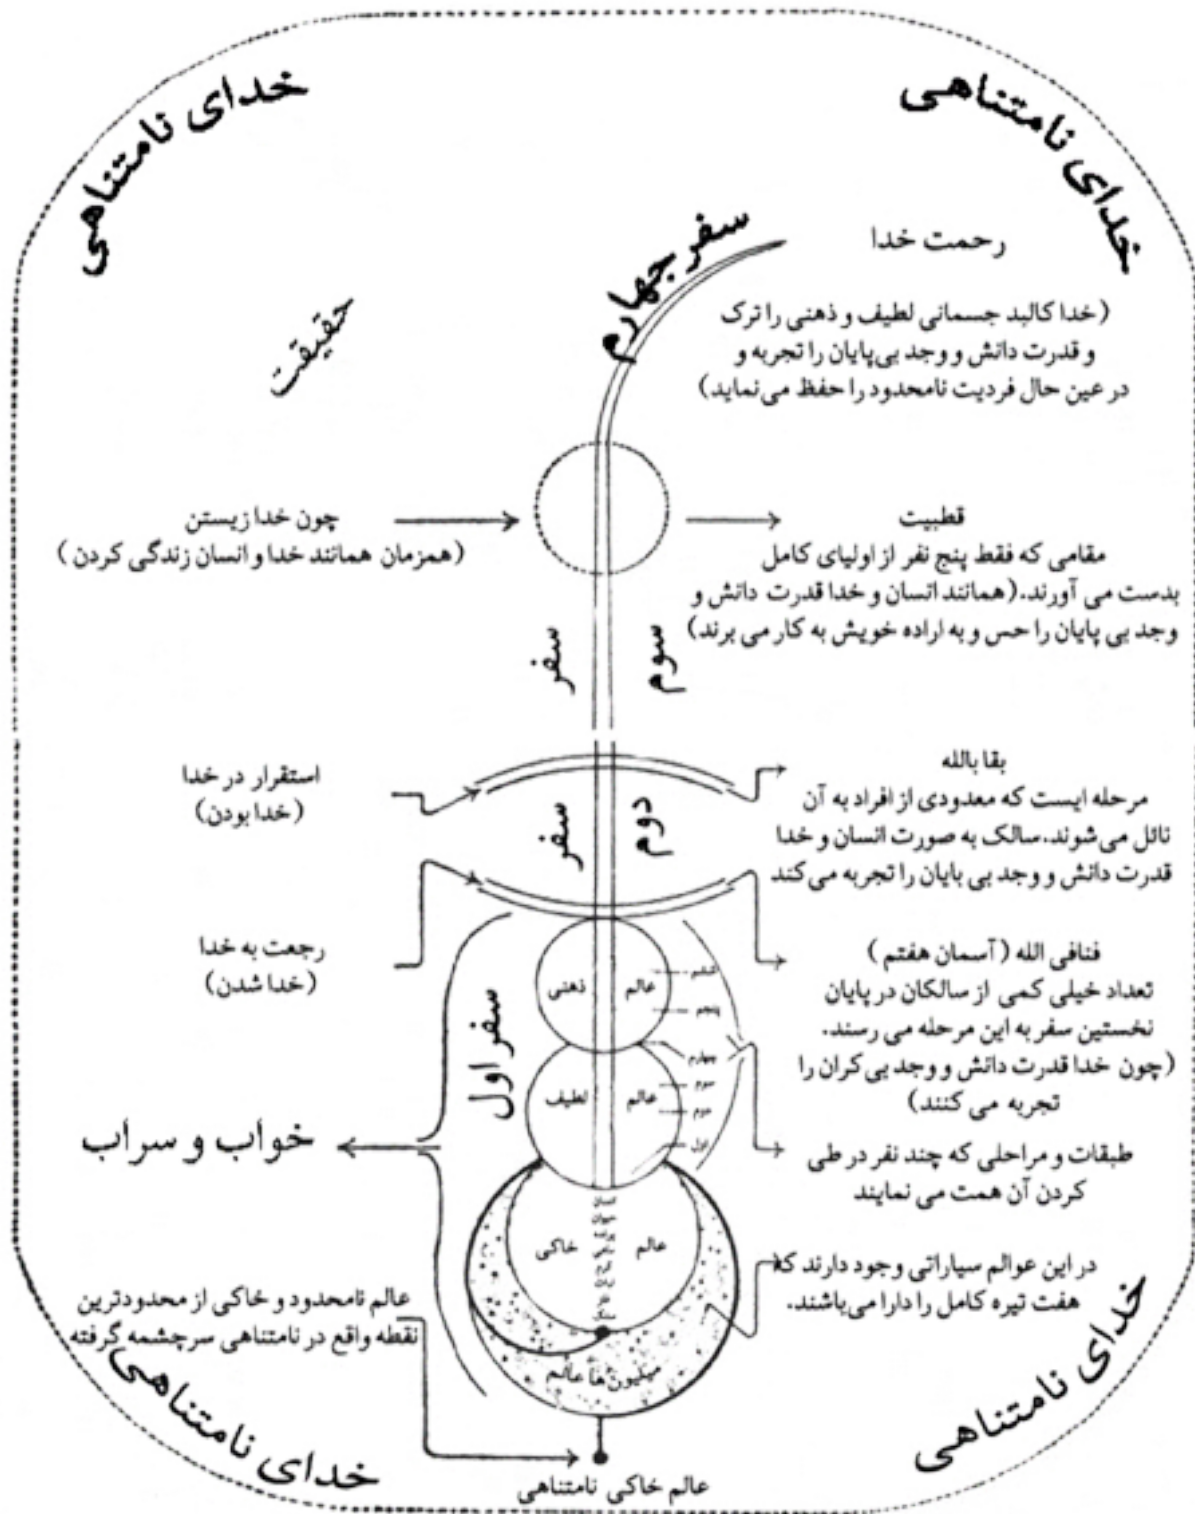 خدای نامتناهی
خدای نامتناهی
سفر چهارم
رحمت خدا
(خدا کالبد جسمانی لطیف و ذهنی را ترک
و قدرت دانش و وجد بی‌پایان را تجربه و
در عین حال فردیت نامحدود را حفظ می‌نماید)
حقیقت
قطبیت
مقامی که فقط پنج نفر از اولیای کامل
بدست می آورند.(همانند انسان و خدا قدرت دانش و
وجد بی پایان را حس و به اراده خویش به کار می برند)
چون خدا زیستن
(همزمان همانند خدا و انسان زندگی کردن)
سفر سوم
بقا بالله
مرحله ایست که معدودی از افراد به آن
نائل می‌شوند.سالک به صورت انسان و خدا
قدرت دانش و وجد بی بایان را تجربه می‌کند
استقرار در خدا
(خدا بودن)
سفر دوم
فنافی الله (آسمان هفتم)
تعداد خیلی کمی از سالکان در پایان
نخستین سفر به این مرحله می رسند.
(چون خدا قدرت دانش و وجد بی‌کران را
تجربه می کنند)
رجعت به خدا
(خدا شدن)
سفر اول
عالم ذهنی
ششم
پنجم
چهارم
عالم لطیف
سوم
دوم
اول
طبقات و مراحلی که چند نفر در طی
کردن آن همت می نمایند
خواب و سراب
عالم خاکی
انسان
حیوان
پرنده
ماهی
کرم
نبات
فلز
سنگ
در این عوالم سیاراتی وجود دارند که
هفت تیره کامل را دارا می‌باشند.
عالم نامحدود و خاکی از محدودترین
نقطه واقع در نامتناهی سرچشمه گرفته
میلیون‌ها عالم
عالم خاکی نامتناهی
خدای نامتناهی
خدای نامتناهی